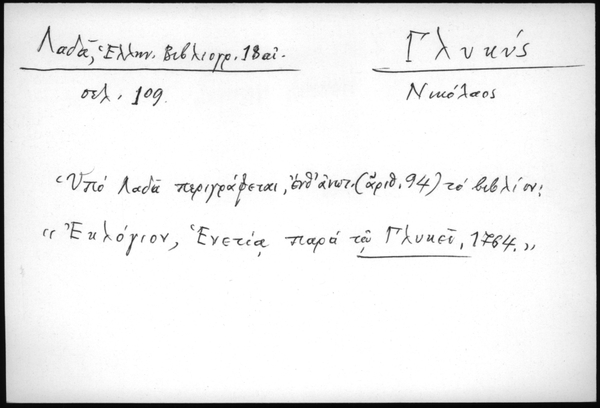 Λαδᾶ, Ἑλλην. Βιβλιογρ. 18 αἰ.
σελ. 109.
Γλυκύς
Νικόλαος
Ὑπό Λαδᾶ περιγράφεται, ἐνθ' ἀνωτ. (ἀριθ. 94) τό βιβλίον:
«Ἐκλόγιον, Ἑνετίᾳ παρά τῷ Γλυκεῖ, 1764.»